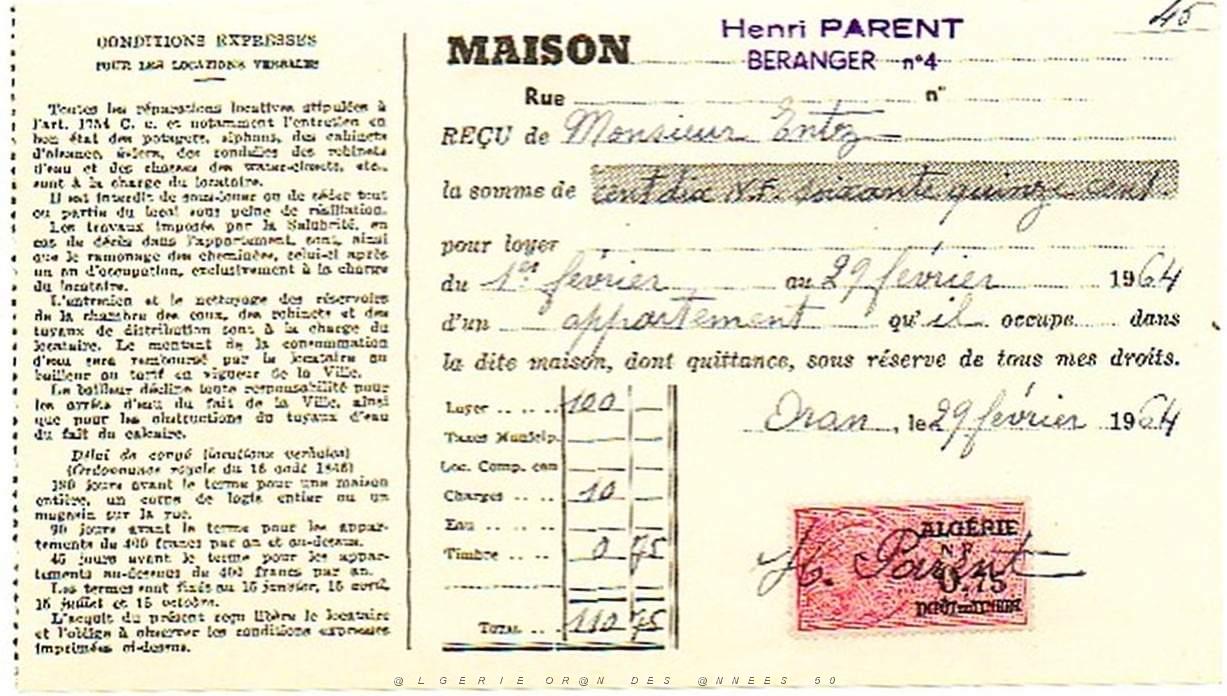 45
CONDITIONS EXPRESSES
POUR LES LOCATIONS VERBALES
Toutes les réparations locatives stipulées à
l'art. 1754 C. c. et notamment l'entretien en
bon état des potagers, siphons, des cabinets
d'aisance, éviers, des rondelles des robinets
d'eau et des chasses des water-closets, etc.,
sont à la charge du locataire.
Il est interdit de sous-louer ou de céder tout
ou partie du local sous peine de résiliation.
Les travaux imposés par la Salubrité, en
cas de décès dans l'appartement, sont, ainsi
que le ramonage des cheminées, celui-ci après
un an d'occupation, exclusivement à la charge
du locataire.
L'entretien et le nettoyage des réservoirs
de la chambre des eaux, des robinets et des
tuyaux de distribution sont à la charge du
locataire. Le montant de la consommation
d'eau sera remboursé par le locataire au
bailleur au tarif en vigueur de la Ville.
Le bailleur décline toute responsabilité pour
les arrêts d'eau du fait de la Ville, ainsi
que pour les obstructions du tuyaux d'eau
du fait du calcaire.
Délai de congé (locations verbales)
(Ordonnance royale du 16 août 1846)
180 jours avant le terme pour une maison
entière, un corps de logis entier ou un
magasin sur la rue.
90 jours avant le terme pour les appar-
tements de 400 francs par an et au-dessus.
45 jours avant le terme pour les appar-
tements au-dessous de 400 francs par an.
Les termes sont fixés au 15 janvier, 15 avril,
15 juillet et 15 octobre.
L'acquit du présent reçu libère le locataire
et l'oblige à observer les conditions expresses
imprimées ci-dessus.
MAISON Henri PARENT
BERANGER n°4
Rue n°
REÇU de Monsieur Entoz
la somme de cent dix N.F. soixante quinze cent.
pour loyer
du 1er février au 29 février 1964
d'un appartement qu'il occupe dans
la dite maison, dont quittance, sous réserve de tous mes droits.
Oran, le 29 février 1964
Loyer 100 —
Taxes Municip.
Loc. Comp. eau
Charges 10
Eau
Timbre 0 75
TOTAL 110 75
ALGÉRIE
N F
0,75
IMPÔT DU TIMBRE
H. Parent
@LGERIE OR@N DES @NNEES 50